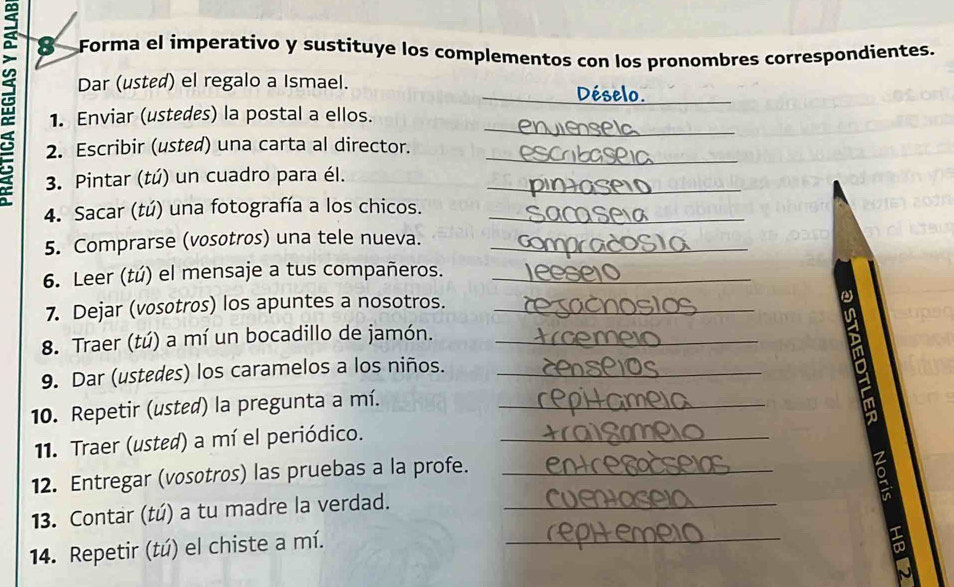 PRACTICA REGLAS Y PALAB
8 Forma el imperativo y sustituye los complementos con los pronombres correspondientes.
Dar (usted) el regalo a Ismael. Déselo.
1. Enviar (ustedes) la postal a ellos. envíensela
2. Escribir (usted) una carta al director. escribasela
3. Pintar (tú) un cuadro para él. pintaselo
4. Sacar (tú) una fotografía a los chicos. sacasela
5. Comprarse (vosotros) una tele nueva. compradosla
6. Leer (tú) el mensaje a tus compañeros. leeselo
7. Dejar (vosotros) los apuntes a nosotros.
8. Traer (tú) a mí un bocadillo de jamón. traemelo
9. Dar (ustedes) los caramelos a los niños. denselos
10. Repetir (usted) la pregunta a mí. repitamela
11. Traer (usted) a mí el periódico. traigamelo
12. Entregar (vosotros) las pruebas a la profe. entregadselas
13. Contar (tú) a tu madre la verdad. cuentasela
14. Repetir (tú) el chiste a mí. repitemelo
STAEDTLER Noris HB 2